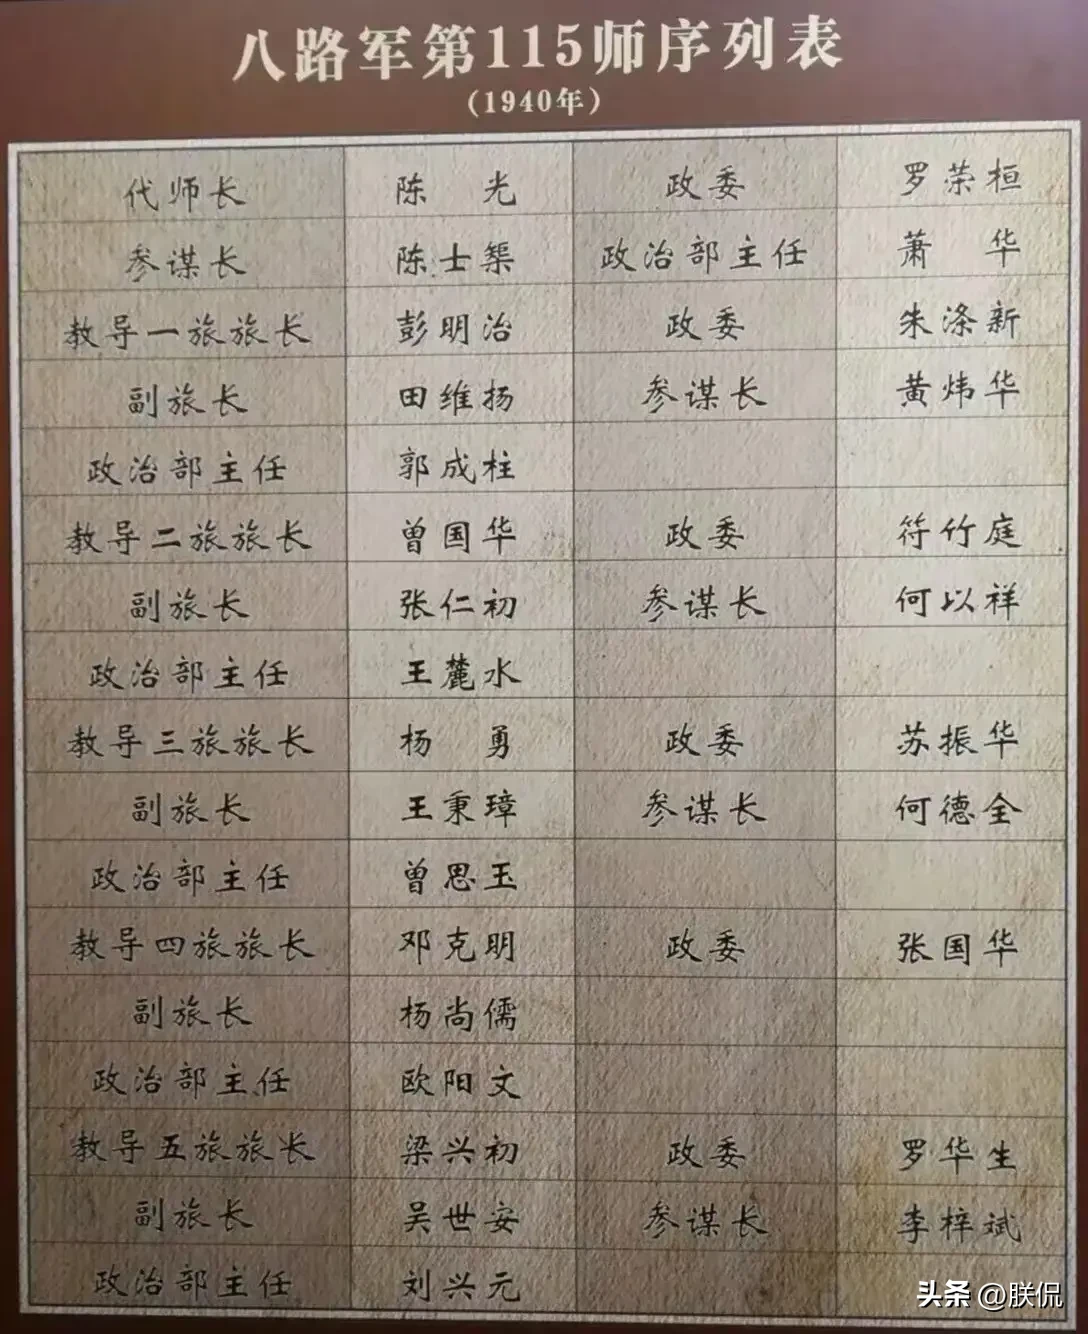 八路军第115师序列表
(1940年)
代师长 陈 光 政委 罗荣桓
参谋长 陈士榘 政治部主任 萧 华
教导一旅旅长 彭明治 政委 朱涤新
副旅长 田维扬 参谋长 黄炜华
政治部主任 郭成柱
教导二旅旅长 曾国华 政委 符竹庭
副旅长 张仁初 参谋长 何以祥
政治部主任 王麓水
教导三旅旅长 杨 勇 政委 苏振华
副旅长 王秉璋 参谋长 何德全
政治部主任 曾思玉
教导四旅旅长 邓克明 政委 张国华
副旅长 杨尚儒
政治部主任 欧阳文
教导五旅旅长 梁兴初 政委 罗华生
副旅长 吴世安 参谋长 李梓斌
政治部主任 刘兴元
头条 @朕侃